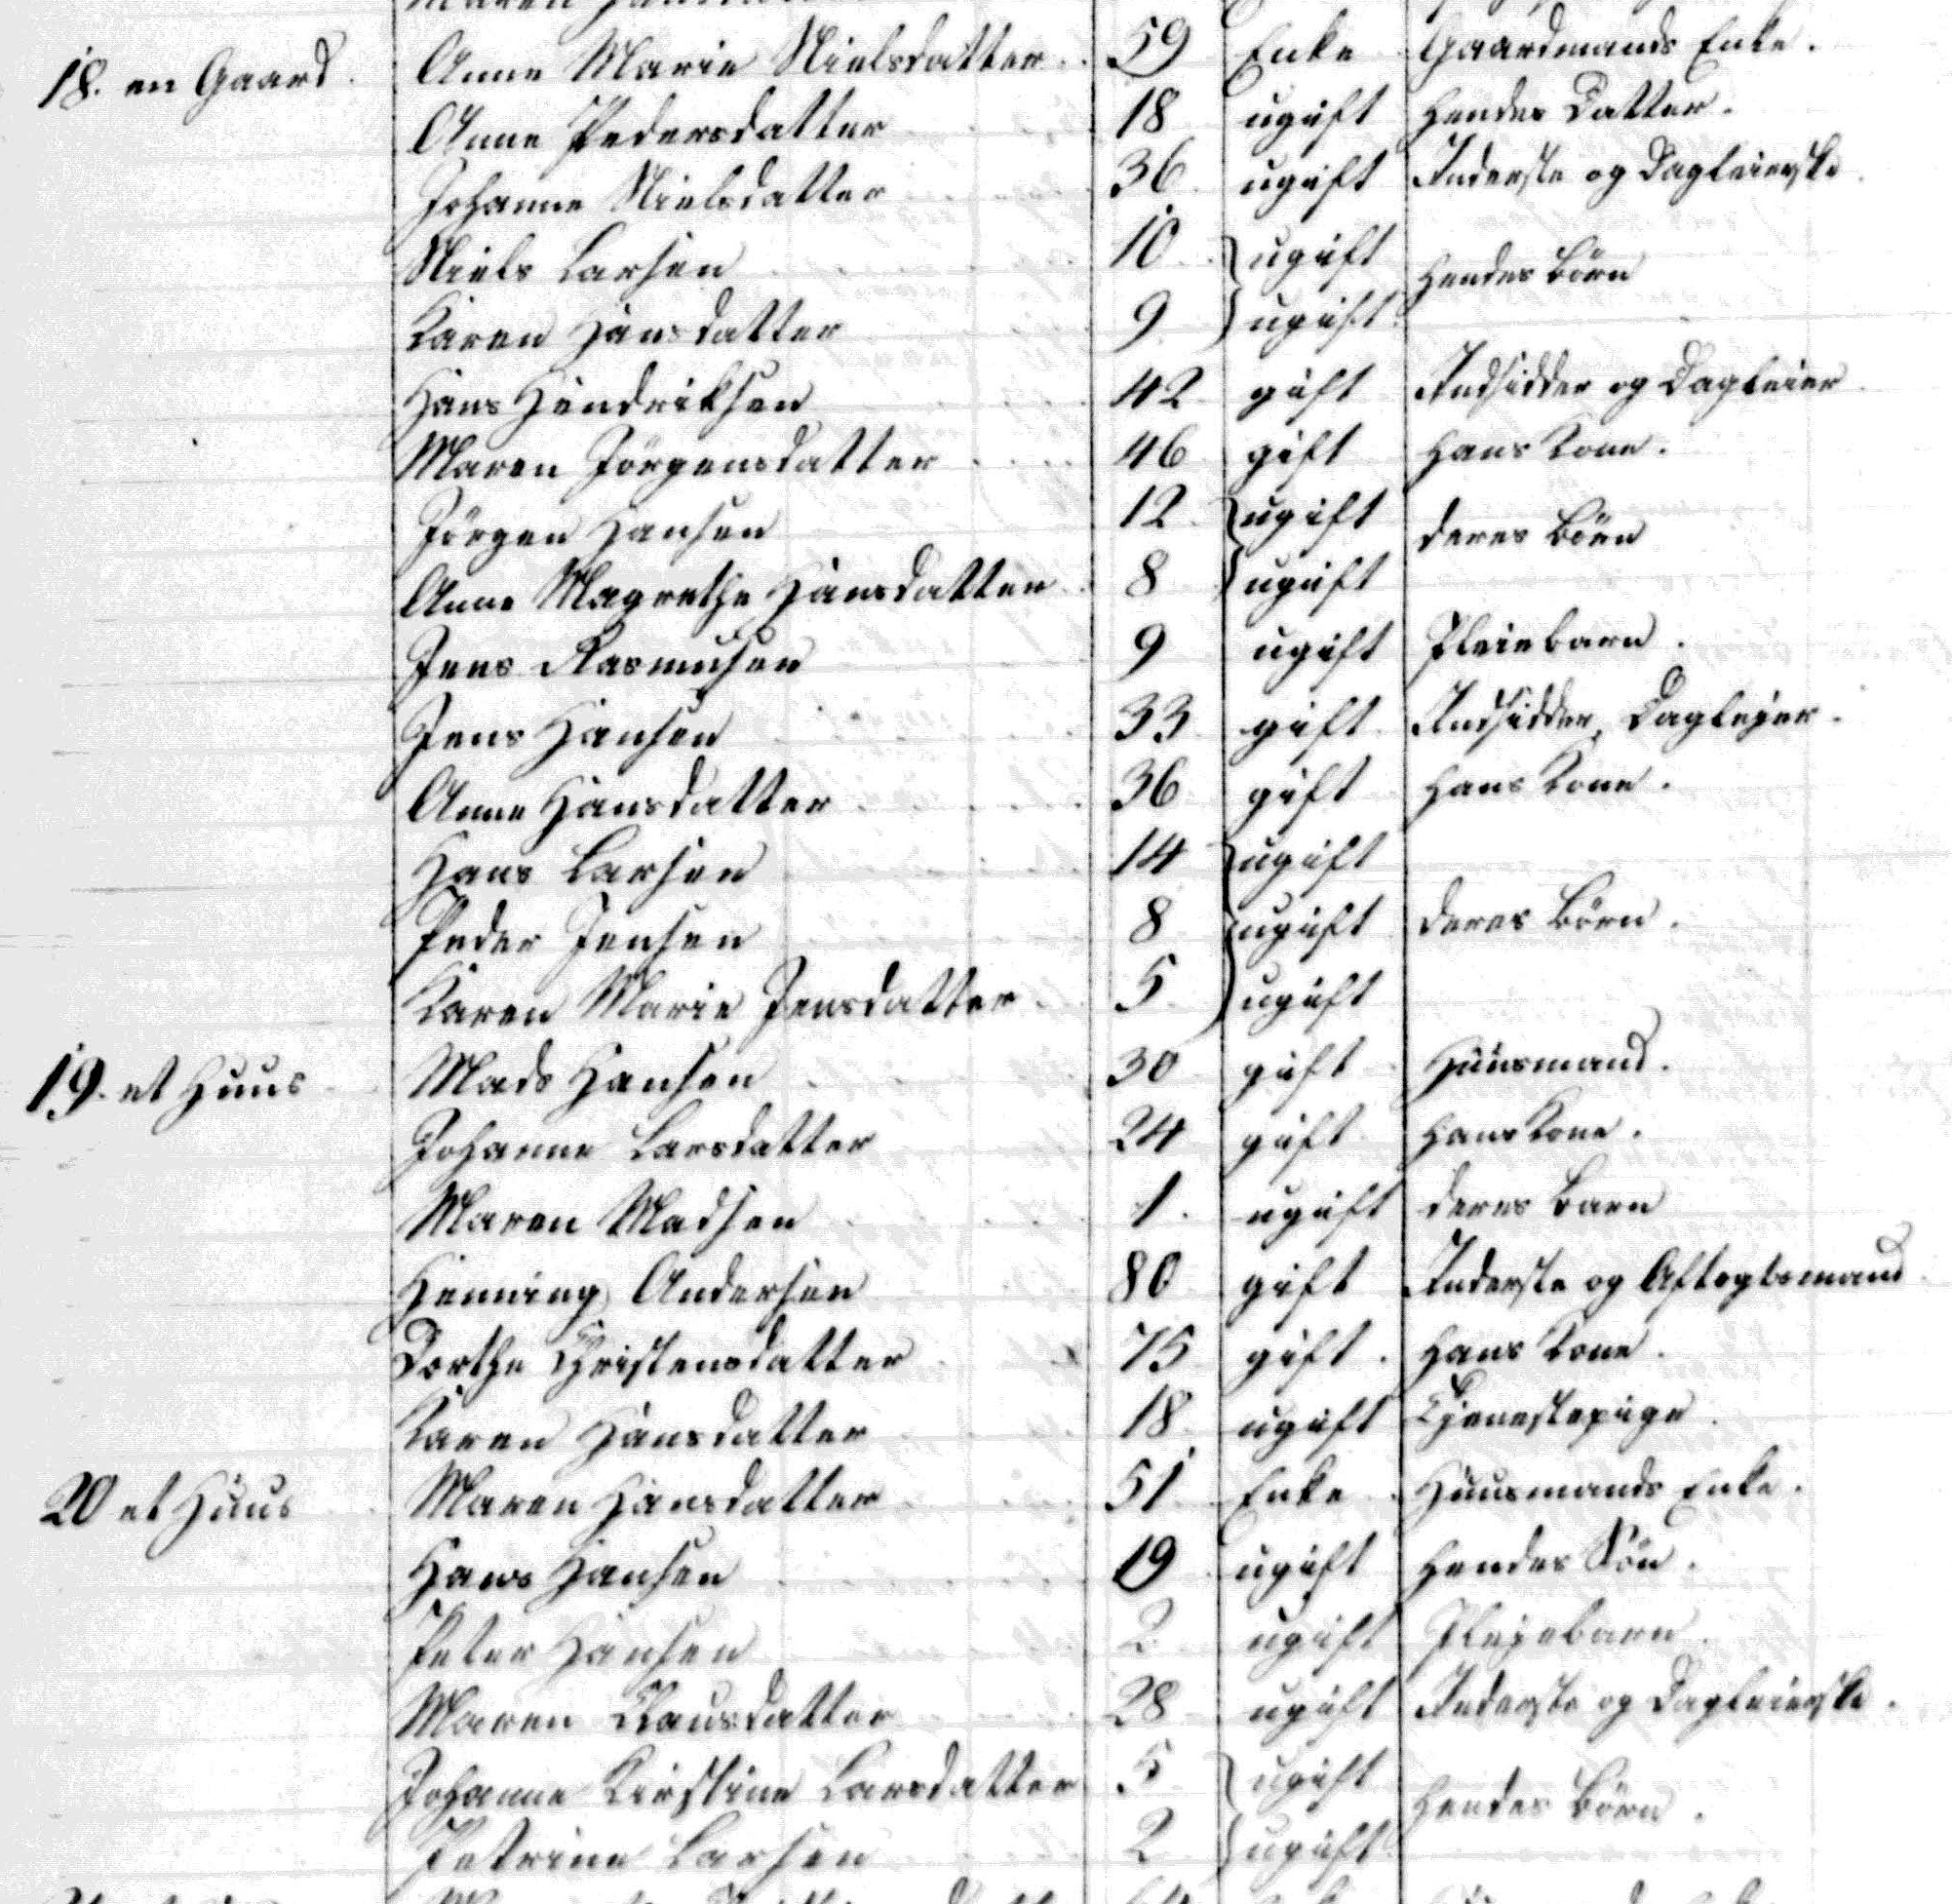 18. en Gaard. Anne Marie Nielsdatter 59 Enke Gaardmands Enke.
Anne Pedersdatter 18 ugift hendes Datter.
Johanne Nielsdatter 36 ugift Inderste og Dagleierske.
Niels Larsen 10 ugift hendes Börn
Karen Hansdatter 9 ugift
Hans Hendriksen 42 gift Indsidder og Dagleier
Maren Jörgensdatter 46 gift hans Kone.
Jörgen Hansen 12 ugift deres Börn
Anne Magrethe Hansdatter 8 ugift
Jens Rasmusen 9 ugift Pleiebarn.
Jens Hansen 33 gift Indsidder, Daglejer.
Anne Hansdatter 36 gift hans Kone.
Hans Larsen 14 ugift
Peder Jensen 8 ugift deres Börn.
Karen Marie Jensdatter 5 ugift
19. et Huus Mads Hansen 30 gift Huusmand.
Johanne Larsdatter 24 gift hans Kone.
Maren Madsen 1. ugift deres Barn
Henning Andersen 80 gift Inderste og Aftægtsmand
Dorthe Christensdatter 75 gift. hans Kone.
Karen Hansdatter 18 ugift Tjenestepige.
20 et Huus Maren Hansdatter 51 Enke Huusmands Enke.
Hans Hansen 19 ugift hendes Sön.
Peter Hansen 2 ugift Plejebarn.
Maren Clausdatter 28 ugift Inderste og Dagleierske.
Johanne Kirstine Larsdatter 5 ugift hendes Börn.
Petrine Larsen 2 ugift